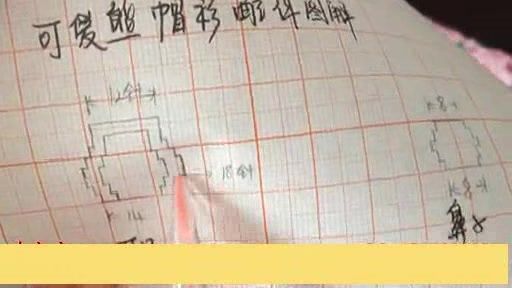 可爱熊帽衫配件图解
12针
8
18针
14
8
鼻子